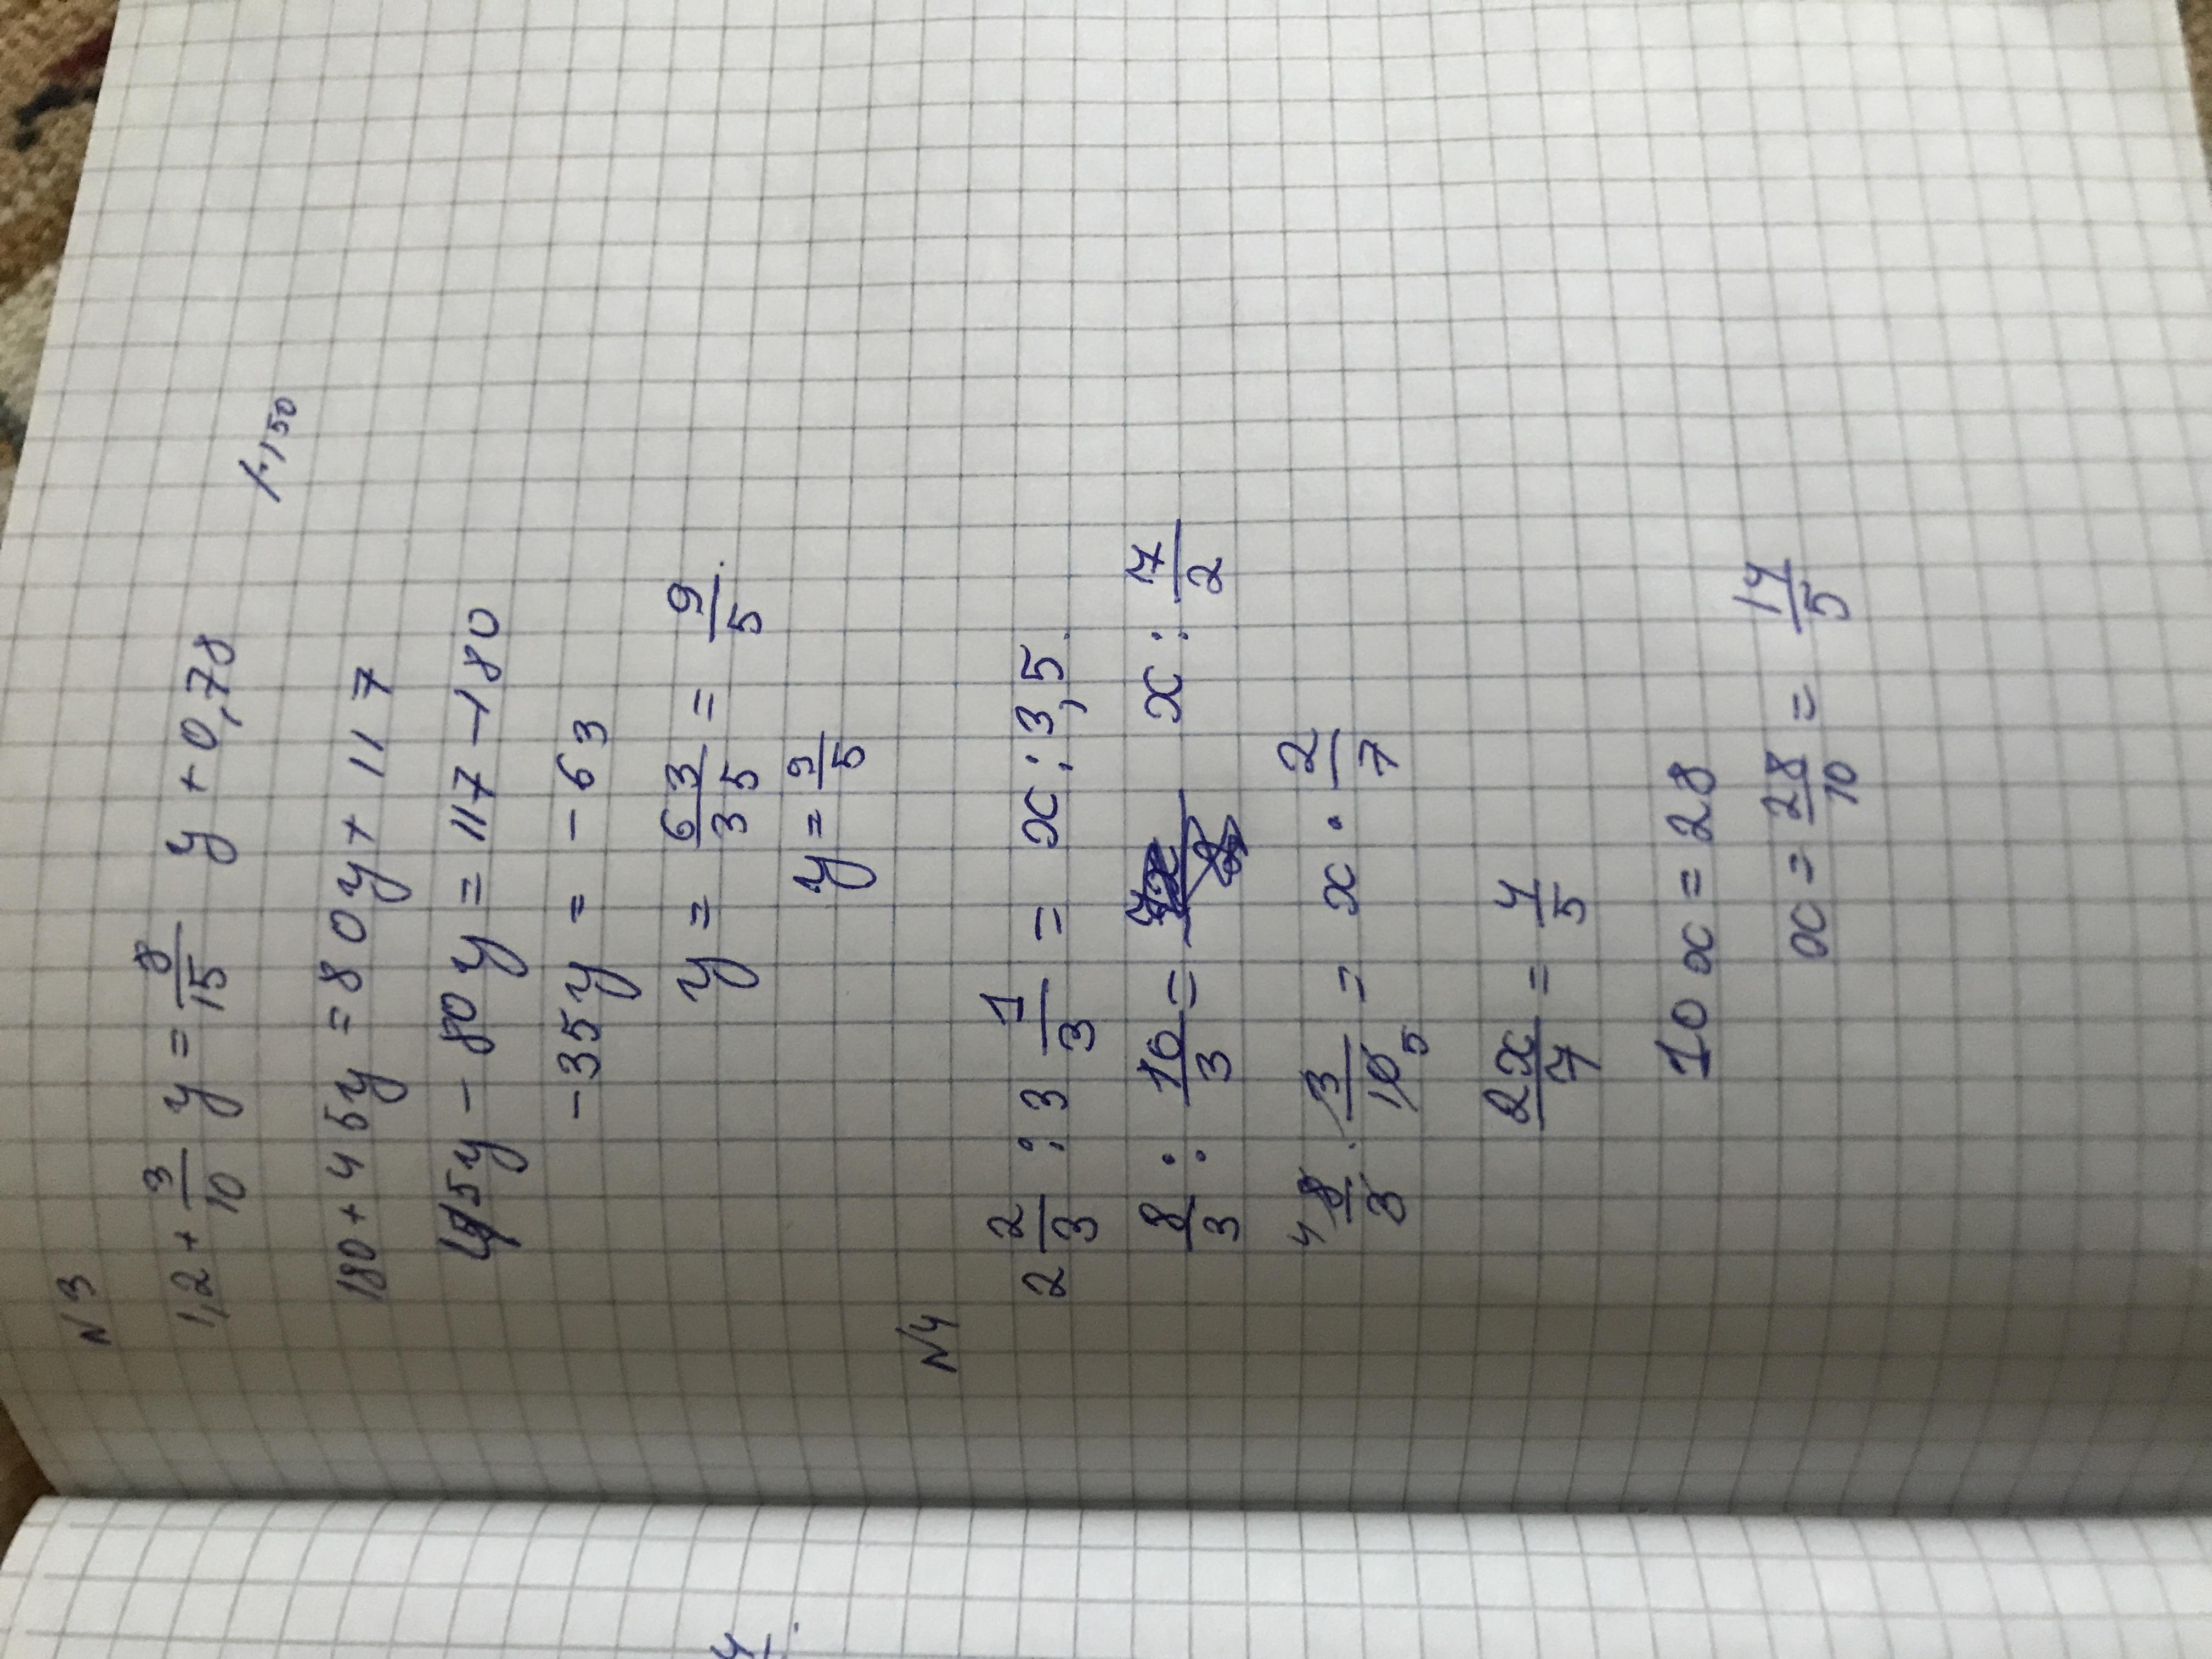 N3
1,2 + 3/10 y = 8/15 y + 0,78 |·150
180 + 45y = 80y + 117
45y - 80y = 117 - 180
-35y = -63
y = 63/35 = 9/5.
y = 9/5
N4
2 2/3 : 3 1/3 = x : 3,5.
8/3 : 10/3 = x : 7/2
4 8/3 · 3/10 5 = x · 2/7
2x/7 = 4/5
10x = 28
x = 28/10 = 14/5